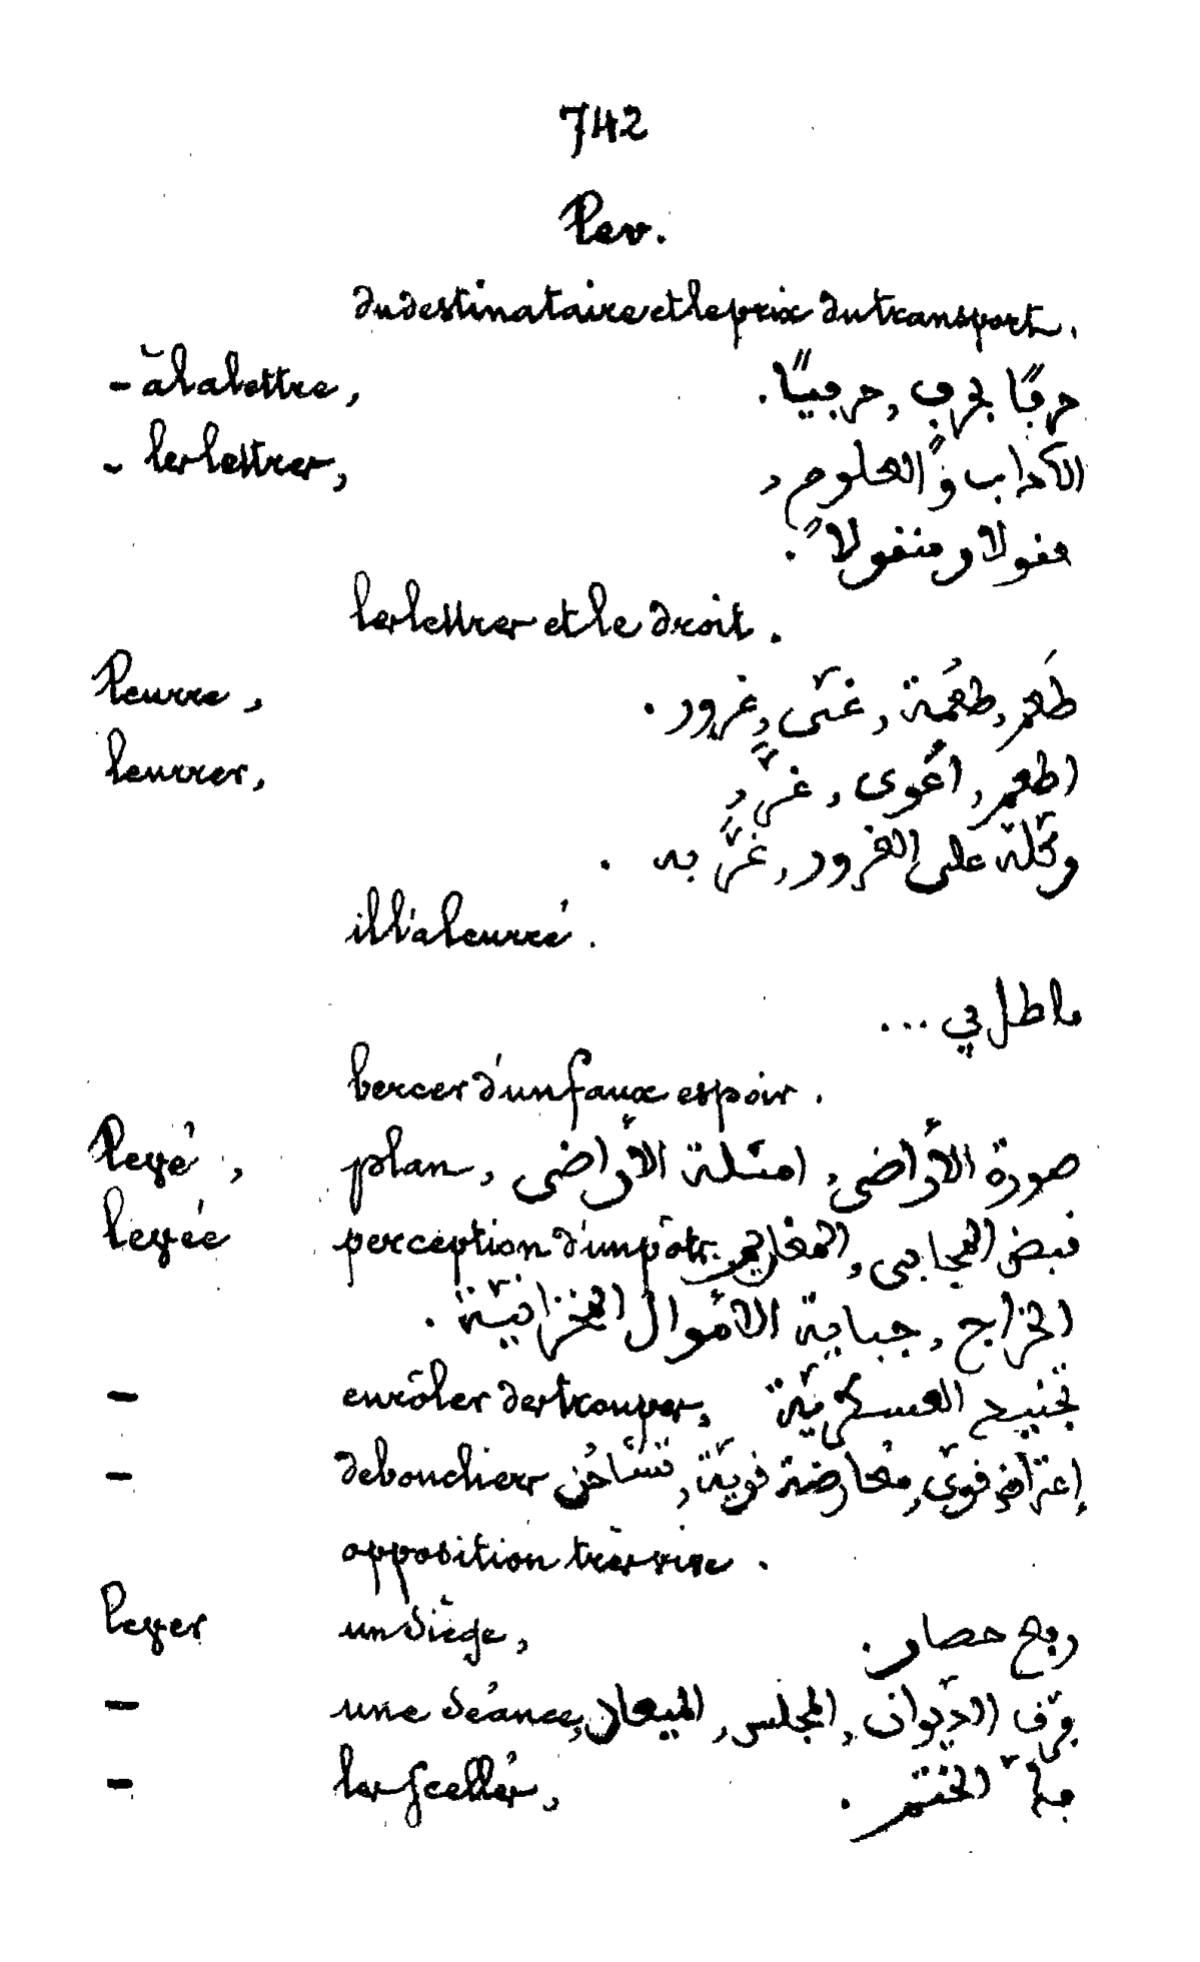 742
Lev.
du destinataire et le prix du transport.
- à la lettre, حرفًا بحرف, حرفيًّا.
- les lettres, الآداب و العلوم,
منقولا و
les lettres et le droit.
Leurre, طعم, طعمة, غشّ, غرور.
leurrer, اطعم, اغوى, غرّ,
وكّله على الغرور, غرّ به.
il l'a leurré.
ماطل في ...
bercer d'un faux espoir.
Levé, plan, صورة الأراضى, امثلة الأراضى
levée perception d'impôts. قبض المجابى, المغارم,
الخراج, جباية الأموال المخزانيّة.
- enrôler des troupes, تجنيد العسكريّة
- de boucliers إعتراض قوى, معارضة قويّة, تشاحن
opposition très vive.
lever un siège, رفع حصار.
- une séance, فرّق الديوان, المجلس, الميعاد
- les scellés, فكّ الختم.